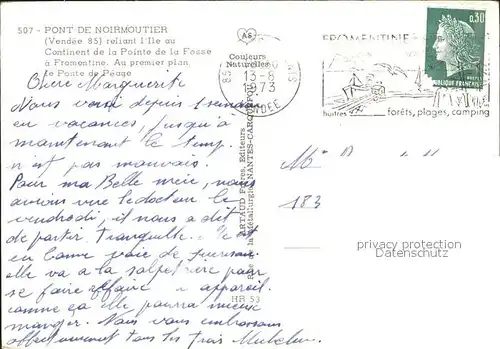 507 - PONT DE NOIRMOUTIER
(Vendée 85) reliant l'Ile au
Continent de la Pointe de la Fosse
à Fromentine. Au premier plan,
le Poste de Péage
Couleurs
Naturelles
13-8
1973
VENDÉE
FROMENTINE
0,30
REPUBLIQUE FRANÇAISE
huîtres
forêts, plages, camping
ARTAUD Frères, Editeurs
NANTES-CARQUEFOU
HR 53
Chère Marguerite
Nous voici depuis 1 semaine
en vacances, jusqu'à
maintenant le temps
n'est pas mauvais.
Pour ma Belle mère, nous
avions vue le docteur le
vendredi, il nous a dit
de partir tranquille. est
en bonne voie de
elle va a la salpetriere pour
se faire faire appareil
comme ça elle pourra mieux
manger. Nous vous embrassons
affectueusement tous les trois
183
AS
protection copyright
Datenschutz